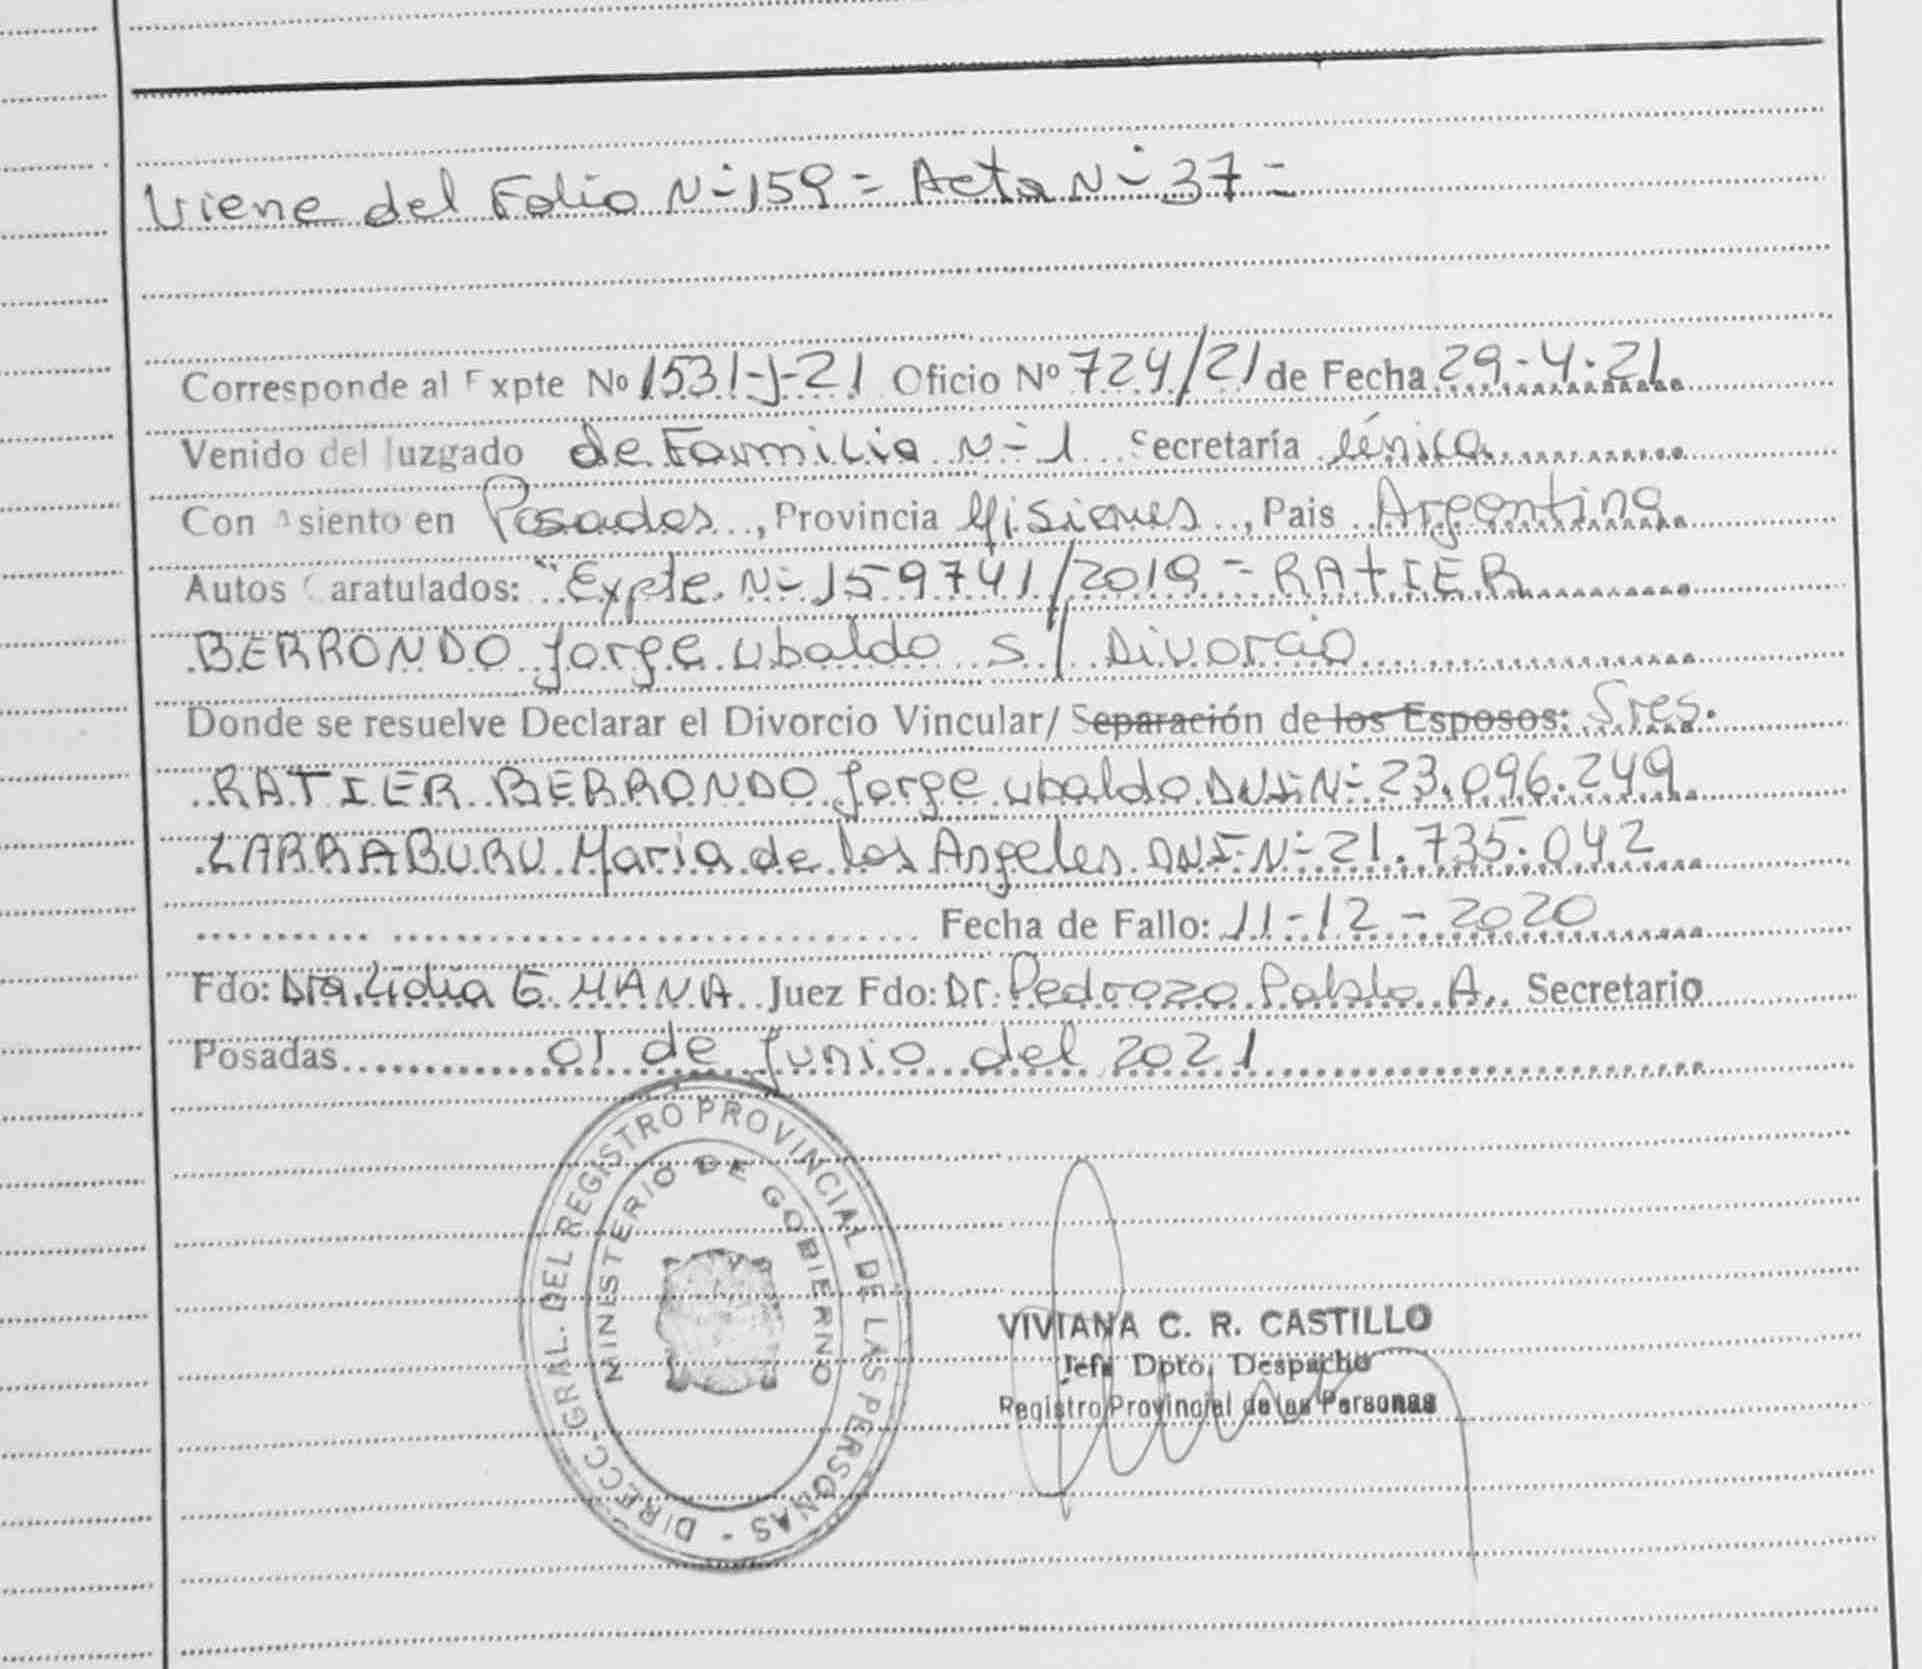 Viene del Folio N- 159 = Acta N- 37 =
Corresponde al Expte Nº 1531-J-21 Oficio Nº 724/21 de Fecha 29-4-21
Venido del Juzgado de Familia N- 1 Secretaría única
Con Asiento en Posadas, Provincia Misiones, Pais Argentina
Autos Caratulados: "Expte. N- 159741/2019 = RATIER
BERRONDO Jorge ubaldo s/ Divorcio
Donde se resuelve Declarar el Divorcio Vincular/ Separación de los Esposos: Sres.
RATIER BERRONDO Jorge ubaldo DNI-N- 23.096.249
LARRABURU Maria de los Angeles DNI-N- 21.735.042
Fecha de Fallo: 11-12-2020
Fdo: Dra. Lidia G. MANA Juez Fdo: Dr. Pedrozo Pablo A. Secretario
Posadas 01 de Junio del 2021
DIRECC. GRAL. DEL REGISTRO PROVINCIAL DE LAS PERSONAS -
MINISTERIO DE GOBIERNO
VIVIANA C. R. CASTILLO
Jefa Dpto. Despacho
Registro Provincial de las Personas